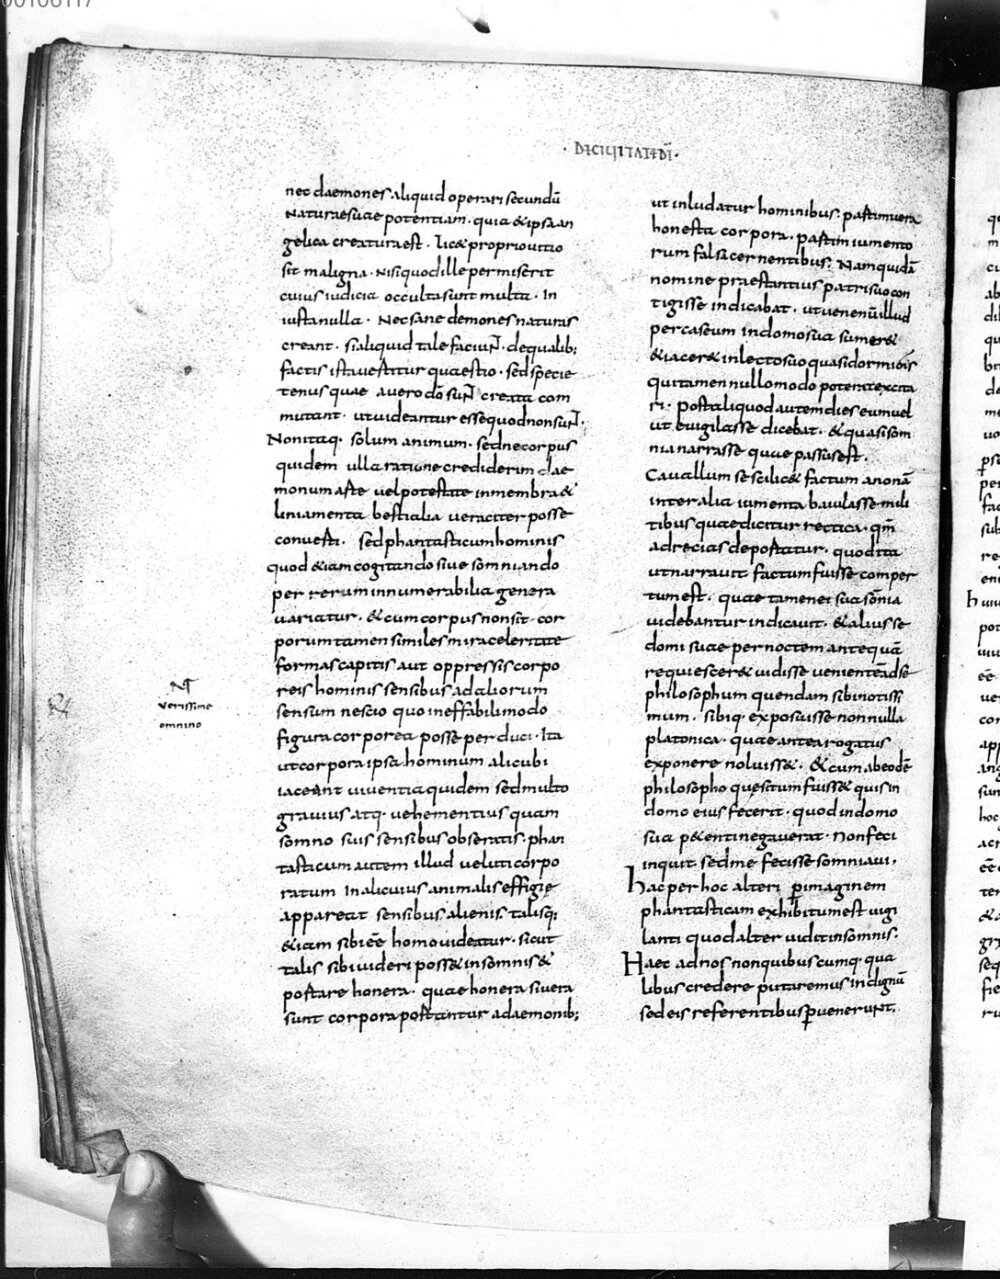 00106117
· DECIUITATE DĪ ·
nec daemones aliquid operari secundū
Naturaesuae potentiam· quia & ipsa an
gelica creatura est· lic& proprio uitio
sit maligna· Nisi quod ille permiserit
cuius iudicia occulta sunt multa· In
iusta nulla· Nec sane demones naturas
creant· si aliquid tale faciuNT· de qualib;
factis ista uestitur quaestio· sed specie
tenus quae a uero dō suNT creata com
mutant· ut uideantur esse quod non suNT·
Non itaq· solum animum· sed nec corpus
quidem ulla ratione crediderim dae
monum arte uel potestate in membra &
liniamenta bestialia ueraciter posse
conuerti· sed phantasticum hominis
quod &iam cogitando siue somniando
per rerum innumerabilia genera
uariatur· & cum corpus non sit· cor
porum tamen similes mira celeritate
formas capit is aut oppressis corpo
reis hominis sensibus ad aliorum
sensum nescio quo ineffabili modo
figura corporea posse per duci· Ita
ut corpora ipsa hominum alicubi
iaceant uiuentia quidem sed multo
grauius atq· uehementius quam
somno suis sensibus obseratis· phan
tasticum autem illud ueluti corpo
ratum In alicuius animalis effigie
appareat sensibus alienis· talisq;
&iam sibi eē homo uideatur· sicut
talis sibi uideri poss& in somnis &
portare honera· quae honera si uera
sunt corpora portantur a daemonib;
NT
verissime
omnino
ut inludatur hominibus· partim uera
honesta corpora· partim iumento
rum falsa cernentibus; Nam quidā
nomine praestantius patri suo con
tigisse indicabat· ut uenenū illud
per caseum in domo sua sumer&
& iacer& in lecto suo quasi dormiens
qui tamen nullo modo poterat excita
ri· Post aliquod autem dies eum uel
ut euigilasse dicebat· & quasi som
nia narrasse quae passus est·
Cauallum se scilic& factum anonā
inter alia iumenta baiulasse mili
tibus quae dicitur retica· qm̄
ad recias deportatur· quod ita
ut narrauit factum fuisse comper
tum est· quae tamen ei sua sōnia
uidebantur indicauit· & alius se
domi suae per noctem antequā
requiescer& uidisse uenientē ad se
philosophum quendam sibi notissi
mum· sibiq· exposuisse non nulla
platonica· quae antea rogatus
exponere noluiss&· & cum ab eodē
philosopho quesitum fuiss& quis in
domo eius fecerit· quod in domo
sua p&enti negauerat· non feci
inquit sed me fecisse somniaui·
hac per hoc alteri p̱ imaginem
phantasticam exhibitum est uigi
lanti quod alter uidit in somnis·
Haec ad nos non quibus cumq· qua
libus credere putaremus indignū
sed eis referentibus p̱uenerunt·